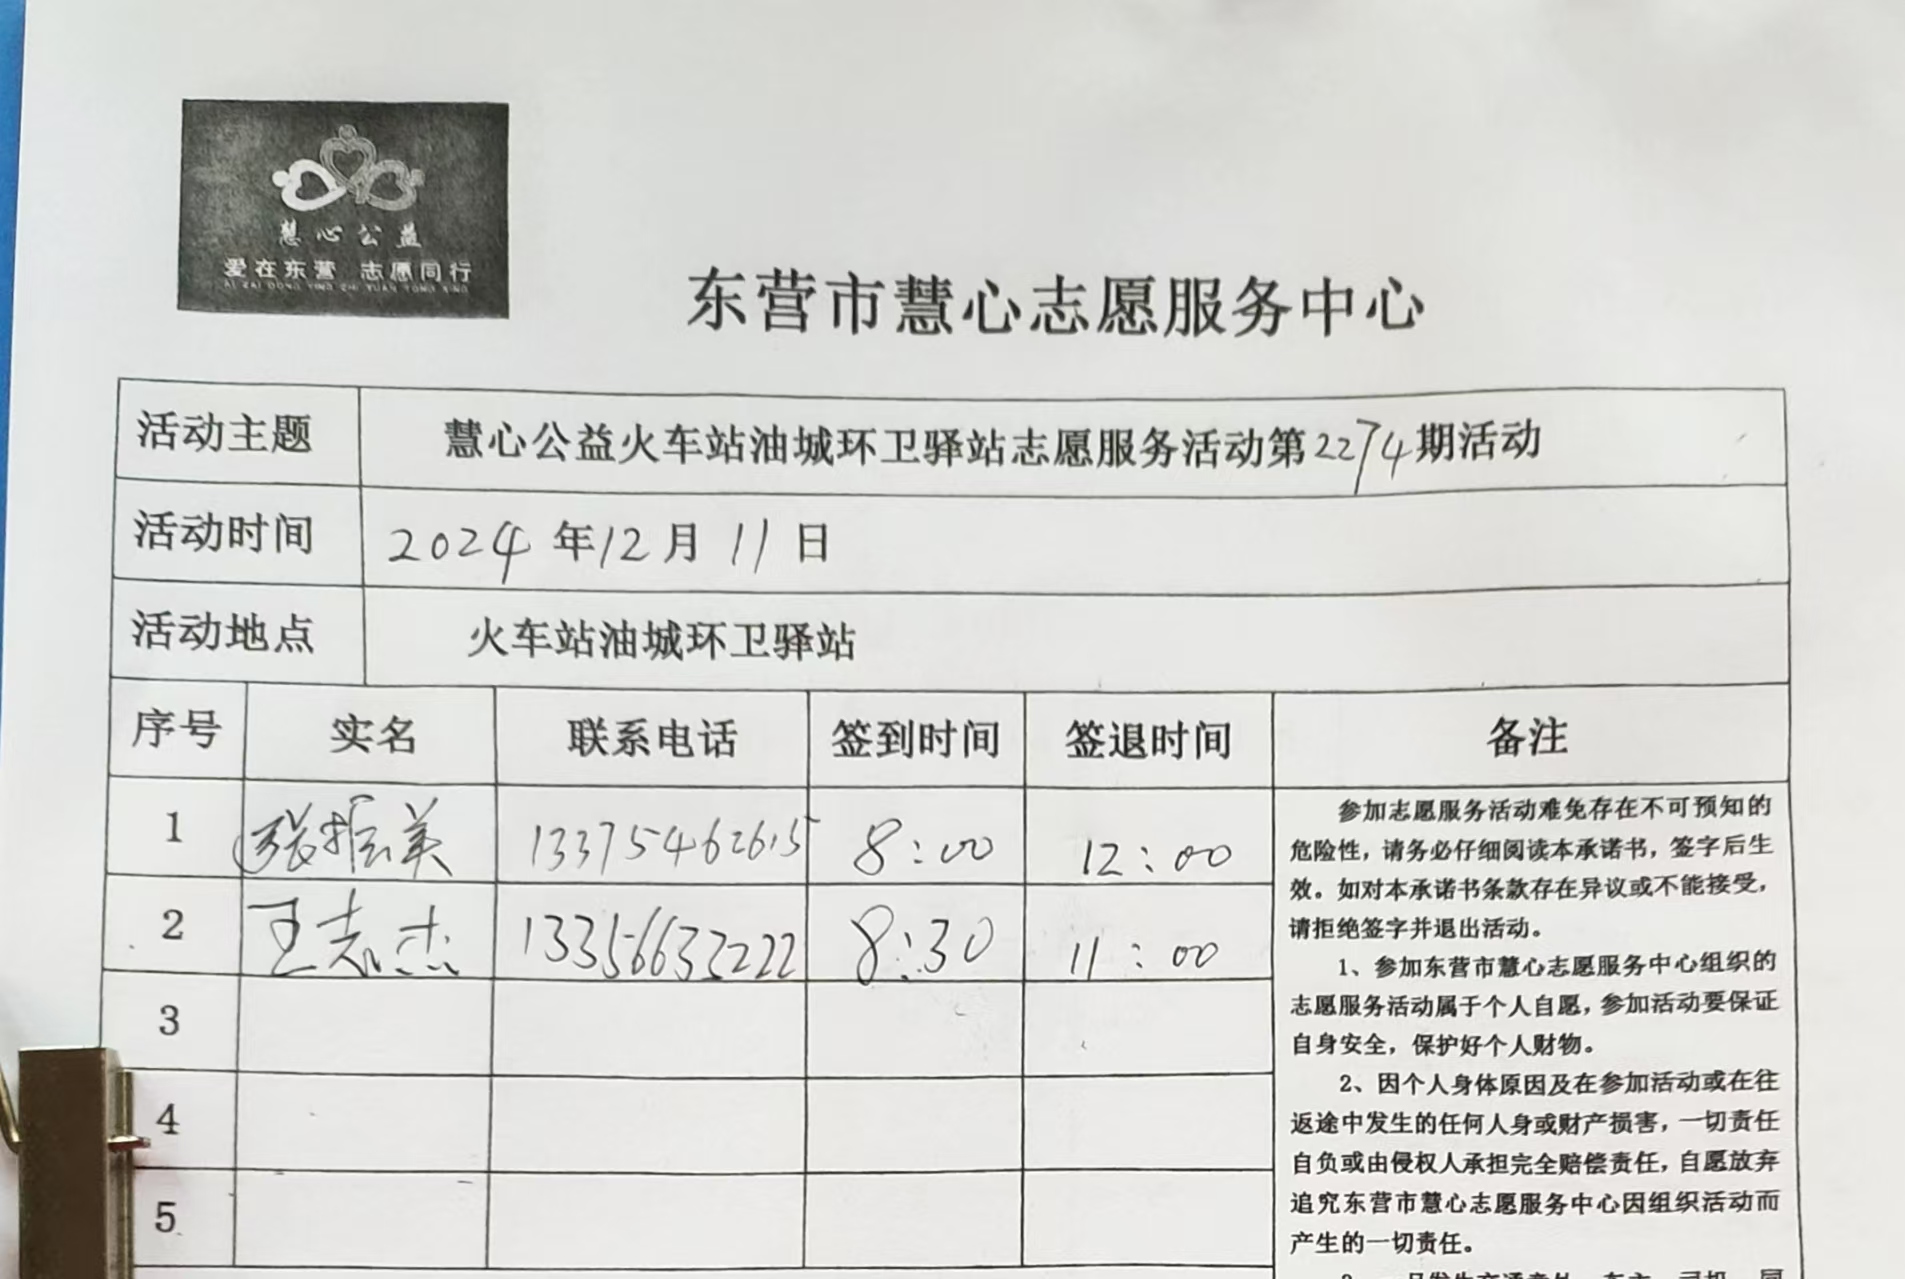 慧心公益
爱在东营 志愿同行
AI ZAI DONG YING ZHI YUAN TONG XING
东营市慧心志愿服务中心
活动主题 慧心公益火车站油城环卫驿站志愿服务活动第2274期活动
活动时间 2024年12月11日
活动地点 火车站油城环卫驿站
序号 实名 联系电话 签到时间 签退时间 备注
1 张振美 13375462615 8:00 12:00
2 王志杰 13356633222 8:30 11:00
3
4
5
参加志愿服务活动难免存在不可预知的
危险性，请务必仔细阅读本承诺书，签字后生
效。如对本承诺书条款存在异议或不能接受，
请拒绝签字并退出活动。
1、参加东营市慧心志愿服务中心组织的
志愿服务活动属于个人自愿，参加活动要保证
自身安全，保护好个人财物。
2、因个人身体原因及在参加活动或在往
返途中发生的任何人身或财产损害，一切责任
自负或由侵权人承担完全赔偿责任，自愿放弃
追究东营市慧心志愿服务中心因组织活动而
产生的一切责任。